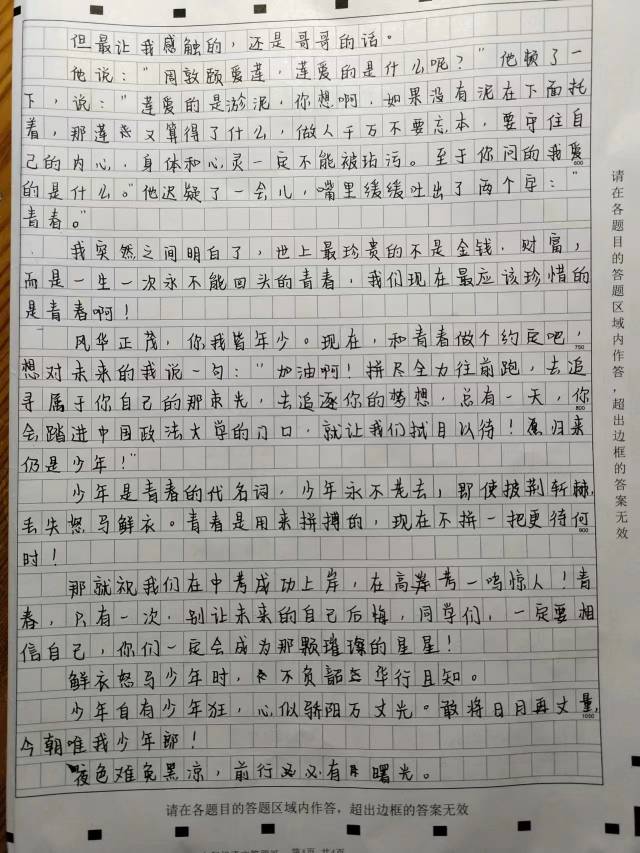 但最让我感触的，还是哥哥的话。
他说：“周敦颐爱莲，莲爱的是什么呢？”他顿了一
下，说：“莲爱的是淤泥，你想啊，如果没有泥在下面托
着，那莲又算得了什么，做人千万不要忘本，要守住自
己的内心，身体和心灵一定不能被玷污。至于你问的我爱
的是什么。”他迟疑了一会儿，嘴里缓缓吐出了两个字：“
青春。”
我突然之间明白了，世上最珍贵的不是金钱，财富，
而是一生一次永不能回头的青春，我们现在最应该珍惜的
是青春啊！
风华正茂，你我皆年少。现在，和青春做个约定吧，
想对未来的我说一句：“加油啊！拼尽全力往前跑，去追
寻属于你自己的那束光，去追逐你的梦想，总有一天，你
会踏进中国政法大学的门口，就让我们拭目以待！愿归来
仍是少年！”
少年是青春的代名词，少年永不老去，即使披荆斩棘，
丢失怒马鲜衣。青春是用来拼搏的，现在不拼一把更待何
时！
那就祝我们在中考成功上岸，在高考一鸣惊人！青
春，只有一次，别让未来的自己后悔，同学们，一定要相
信自己，你们一定会成为那颗璀璨的星星！
鲜衣怒马少年时，不负韶华行且知。
少年自有少年狂，心似骄阳万丈光。敢将日月再丈量，
今朝唯我少年郎！
夜色难免黑凉，前行必有曙光。
600
700
800
900
1000
请在各题目的答题区域内作答，超出边框的答案无效
请在各题目的答题区域内作答，超出边框的答案无效
第4页 共4页